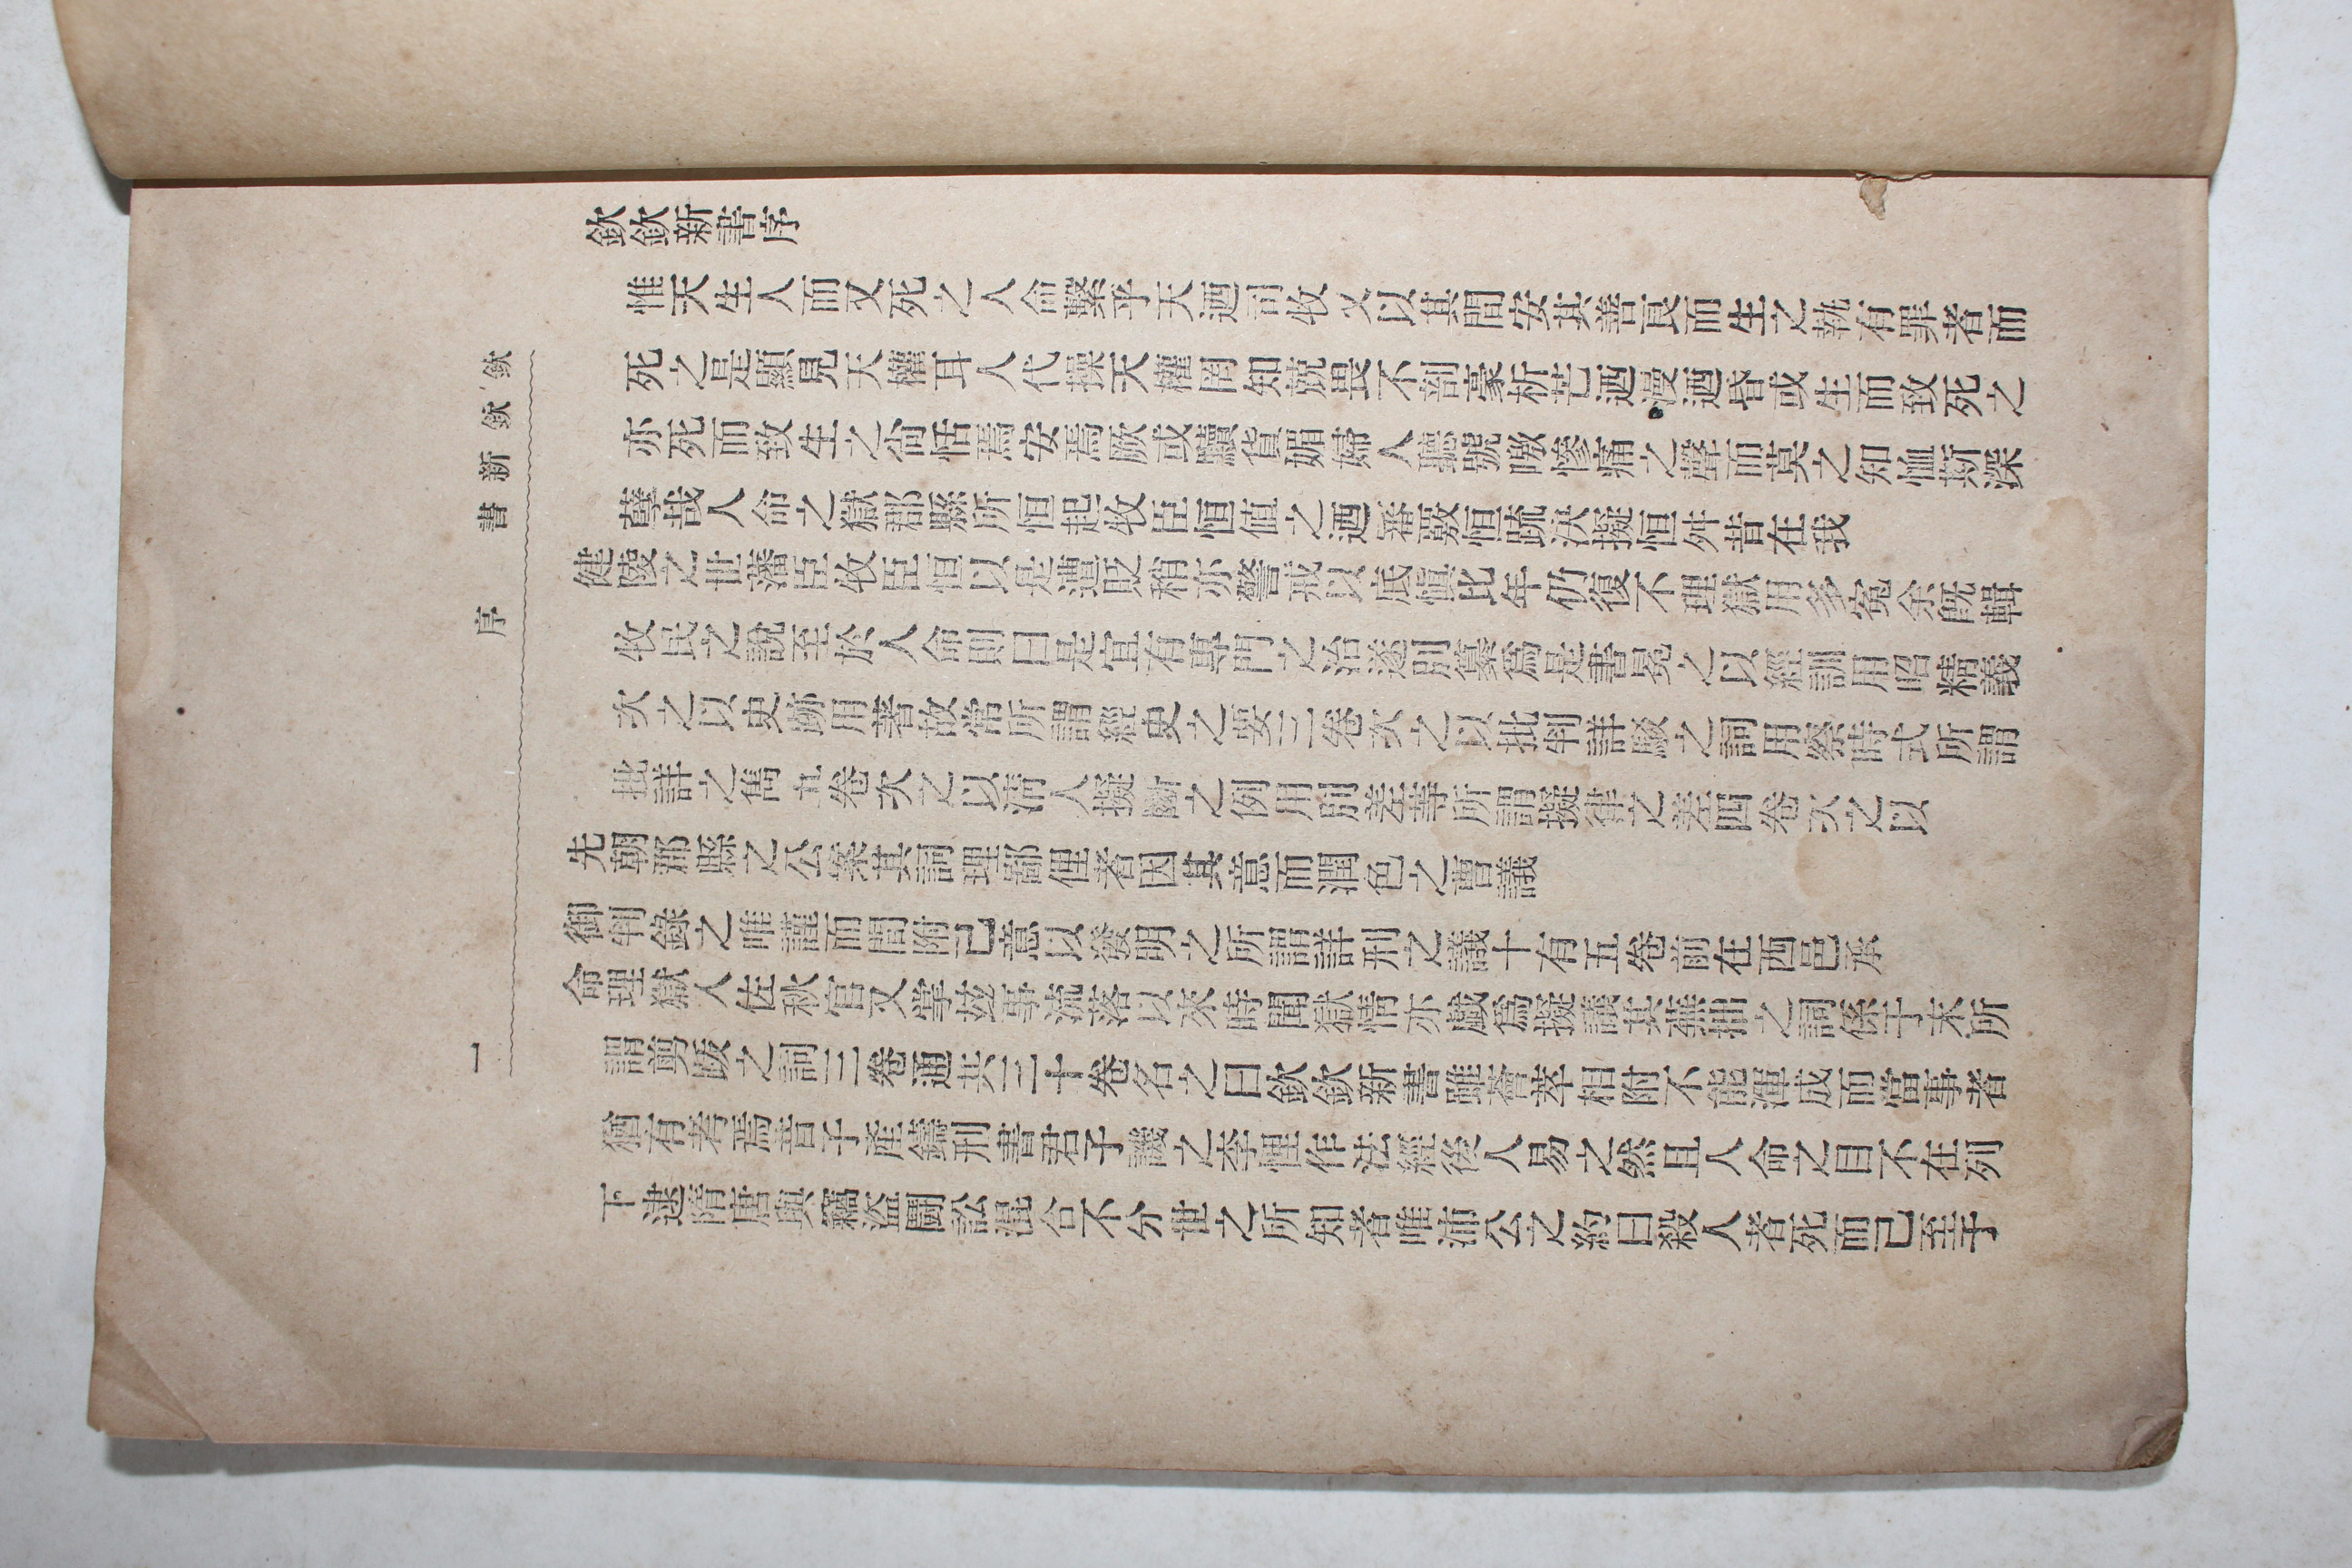 欽欽新書序
惟天生人而又死之人命繫乎天迺司牧又以其間安其善良而生之執有罪者而
死之是顯見天權耳人代操天權罔知兢畏不剖豪析芒迺漫迺昏或生而致死之
亦死而致生之尙恬焉安焉厥或黷貨媚婦人聽號㘁慘痛之聲而莫之知恤斯深
孽哉人命之獄郡縣所恒起牧臣恒值之迺審覈恒疏決擬恒舛昔在我
健陵之世藩臣牧臣恒以是遭貶稍亦警戒以底愼比年仍復不理獄用多寃余旣輯
牧民之說至於人命則曰是宜有專門之治遂別纂爲是書冕之以經訓用昭精義
次之以史跡用著故常所謂經史之要三卷次之以批判詳駁之詞用察時式所謂
批詳之雋五卷次之以淸人擬斷之例用別差等所謂擬律之差四卷次之以
先朝郡縣之公案其詞理鄙俚者因其意而潤色之曹議
御判錄之唯謹而間附己意以發明之所謂詳刑之議十有五卷前在西邑承
命理獄入佐秋官又掌玆事流落以來時聞獄情亦戱爲擬議其蕪拙之詞係于末所
謂剪跋之詞三卷通共三十卷名之曰欽欽新書雖薈萃相附不能渾成而當事者
猶有考焉昔子產鑄刑書君子譏之李悝作法經後人易之然且人命之目不在列
下逮隋唐與竊盜鬪訟混合不分世之所知者唯沛公之約曰殺人者死而已至于
欽欽新書　序　一